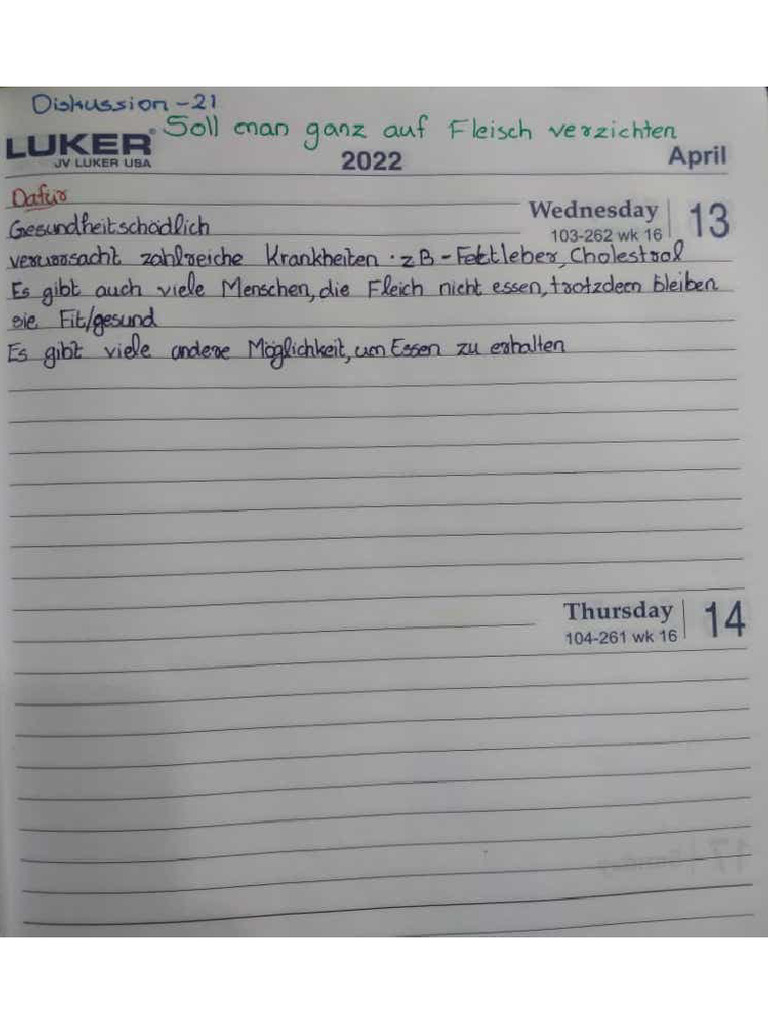 Diskussion - 21
Soll man ganz auf Fleisch verzichten
LUKER®
JV LUKER USA
2022
April
Dafür
Wednesday 13
103-262 wk 16
Gesundheitschädlich
verursacht zahlreiche Krankheiten. zB - Fettleber, Cholestrol
Es gibt auch viele Menschen, die Fleich nicht essen, trotzdem bleiben
sie Fit/gesund
Es gibt viele andere Möglichkeit, um Essen zu erhalten
Thursday 14
104-261 wk 16